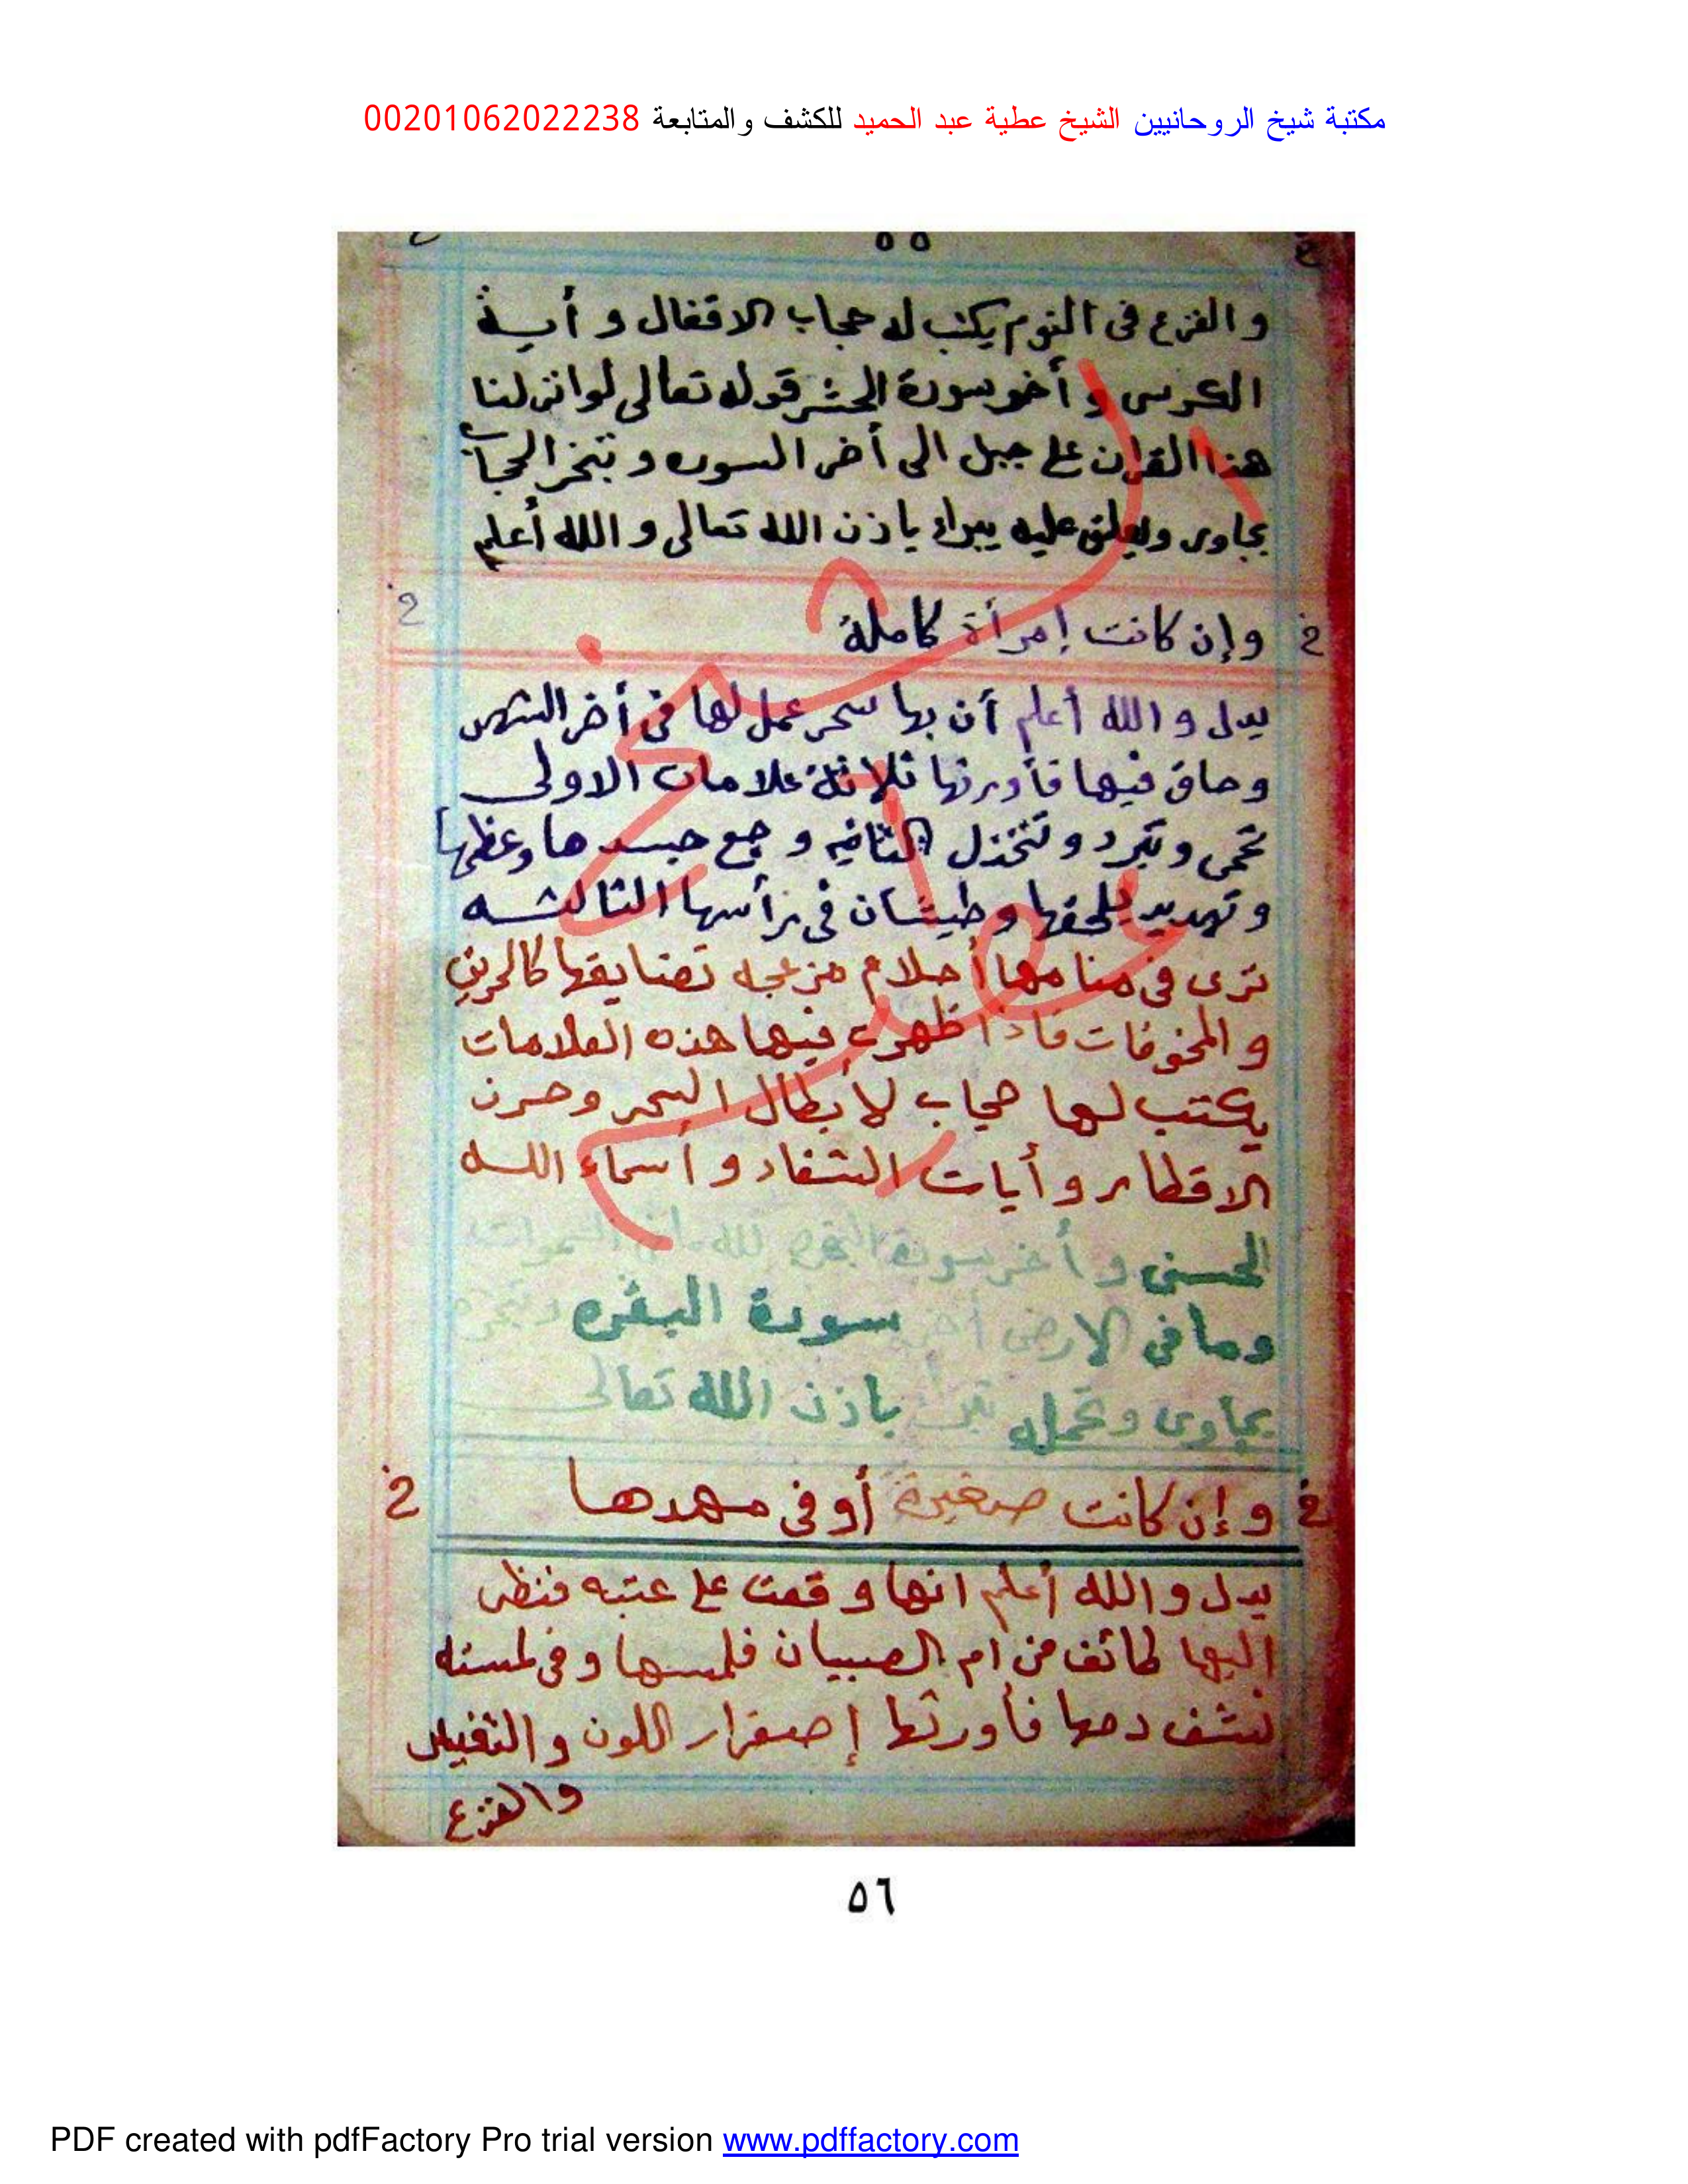 مكتبة شيخ الروحانيين الشيخ عطية عبد الحميد للكشف والمتابعة 00201062022238
٥٥
والفزع فى النوم يكتب له حجاب الاقفال و أية
الكرسى و أخر سورة الحشر قوله تعالى لو انزلنا
هذا القران على جبل الى أخر السوره و تبخر الحجاب
بجاوى ويعلق عليه يبراء باذن الله تعالى و الله أعلم
وإن كانت إمرأة كاملة
يدل و الله أعلم أن بها سحر عمل لها فى أخر الشهر
وحاق فيها فأورثها ثلاثة علامات الاولى
تحمى و تبرد و تتخذل الثانيه وجع جسدها وعظمها
و تهديد يلحقها وطيشان فى رأسها الثالثه
ترى فى منامها أحلام مزعجه تضايقها كالحريق
و المخوفات فاذا ظهرت فيها هذه العلامات
يكتب لها حجاب لأبطال السحر وحرز
الاقطار و أيات الشفاء و أسماء الله
الحسنى و أخر سورة البقره لله مافى السموات
وما فى الارض أخر سورة البقره وتبخره
بجاوى وتحمله تبرأ باذن الله تعالى
وإن كانت صغيرة أو فى مهدها
يدل و الله أعلم انها وقعت على عتبه فنظر
اليها طائف من ام الصبيان فلمسها و فى لمسته
نشف دمها فأورثها إصفرار اللون و التفييل
والفزع
الشيخ عطية عبد الحميد
٥٦
PDF created with pdfFactory Pro trial version www.pdffactory.com